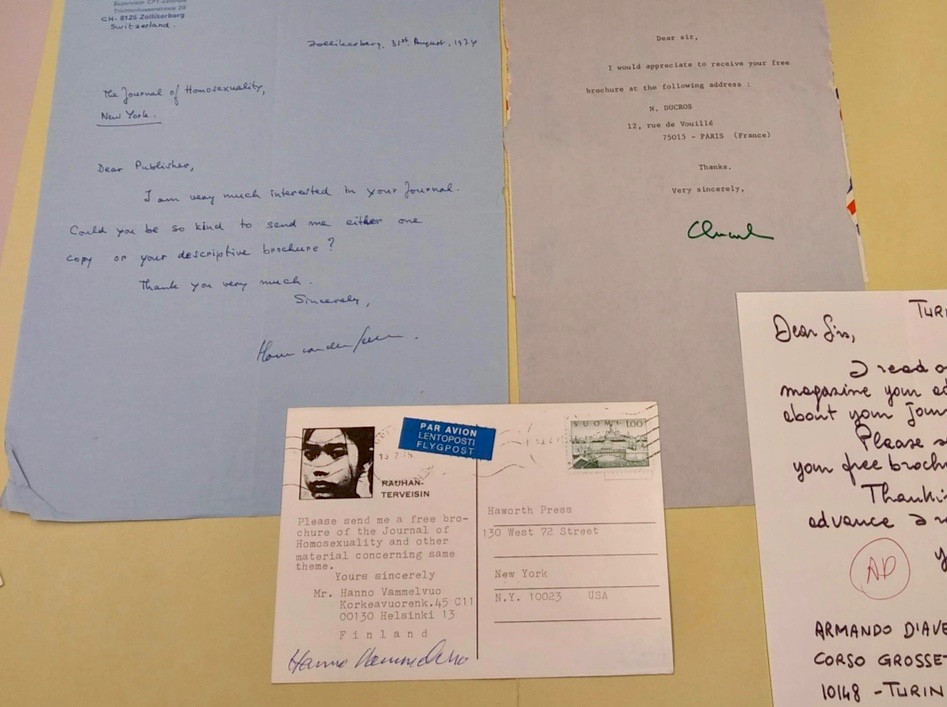 CH- 8125 Zollikerberg
Switzerland.
Zollikerberg, 31st August, 1974
The Journal of Homosexuality,
New York.
Dear Publisher,
I am very much interested in your Journal.
Could you be so kind to send me either one
copy or your descriptive brochure?
Thank you very much.
Sincerely,
Dear sir,
I would appreciate to receive your free
brochure at the following address :
N. DUCROS
12, rue de Vouillé
75015 - PARIS (France)
Thanks.
Very sincerely,
PAR AVION
LENTOPOSTI
FLYGPOST
SUOMI 1,00
RAUHAN-
TERVEISIN
Please send me a free bro-
chure of the Journal of
Homosexuality and other
material concerning same
theme.
Yours sincerely
Mr. Hanno Vammelvuo
Korkeavuorenk.45 C11
00130 Helsinki 13
Finland
Hanno Vammelvuo
Haworth Press
130 West 72 Street
New York
N.Y. 10023 USA
Dear Sirs,
I read
magazine your
about your
Please
your free
advance
AD
ARMANDO
CORSO
10148 - TURIN